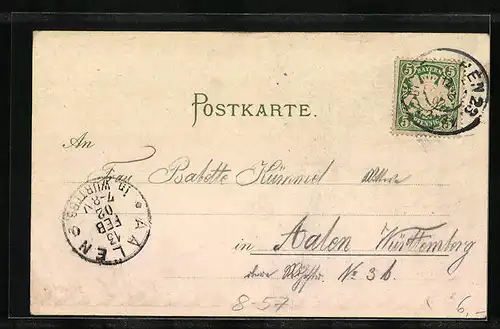 5 BAYERN 5
5 PFENNIG 5
EN 23
POSTKARTE.
An
Frau Babette Kümmel
in Aalen Württemberg
No 3 b.
AALEN
in WÜRTTBG
13
FEB
02
7-8 V
8-57
6,-